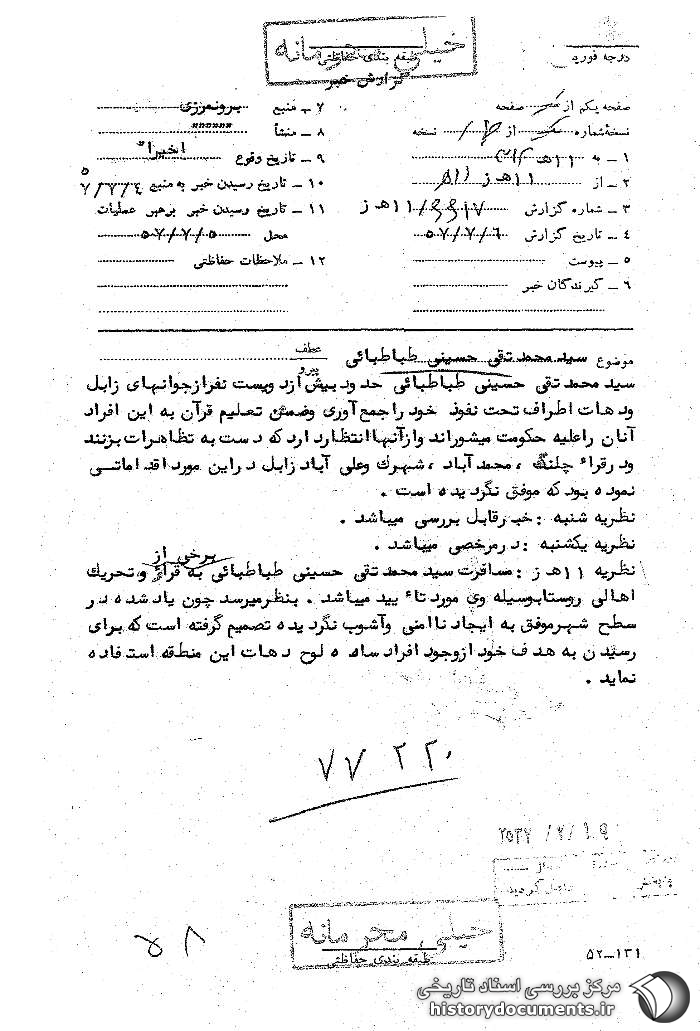 خیلی محرمانه
طبقه بندی حفاظتی
گزارش خبر
درجه فوریت
صفحه یکم از یک صفحه
نسخهٔ شماره یک از نسخه
۱ ـ به
۲ ـ از ۱۱ هـ ز
۳ ـ شماره گزارش / ۱۱ هـ ز
۴ ـ تاریخ گزارش ۵۷/۷/۶
۵ ـ پیوست
۶ ـ گیرندگان خبر
۷ ـ منبع برونمرزی
۸ ـ منشأ """"""
۹ ـ تاریخ وقوع اخیراً
۱۰ ـ تاریخ رسیدن خبر به منبع
۱۱ ـ تاریخ رسیدن خبر برهبر عملیات
محل ۵۷/۷/۵
۱۲ ـ ملاحظات حفاظتی
موضوع سید محمد تقی حسینی طباطبائی
عطف
پیرو
سید محمد تقی حسینی طباطبائی حدود بیش از دویست نفر از جوانهای زابل
و دهات اطراف تحت نفوذ خود را جمع آوری و ضمن تعلیم قرآن به این افراد
آنان را علیه حکومت میشوراند و از آنها انتظار دارد که دست به تظاهرات بزنند
و در قراء چلنگ ، محمد آباد ، شهرک وعلی آباد زابل در این مورد اقداماتی
نموده بود که موفق نگردیده است .
نظریه شنبه : خبر قابل بررسی میباشد .
نظریه یکشنبه : در مرخصی میباشد .
برخی از
نظریه ۱۱ هـ ز : مسافرت سید محمد تقی حسینی طباطبائی به قراء و تحریک
اهالی روستا بوسیله وی مورد تائیید میباشد . بنظر میرسد چون یاد شده در
سطح شهر موفق به ایجاد ناامنی و آشوب نگردیده تصمیم گرفته است که برای
رسیدن به هدف خود از وجود افراد ساده لوح دهات این منطقه استفاده
نماید .
۷۷ ۲۲۰
۲۵۳۷/۷/۱۹
خیلی محرمانه
طبقه بندی حفاظتی
۵۸
۵۲-۱۳۱
مرکز بررسی اسناد تاریخی
historydocuments.ir